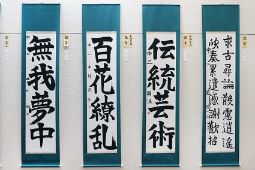 無我夢中
百花繚乱
伝統芸術
求古尋論散慮逍遥
欣奏累遣慼謝歓招